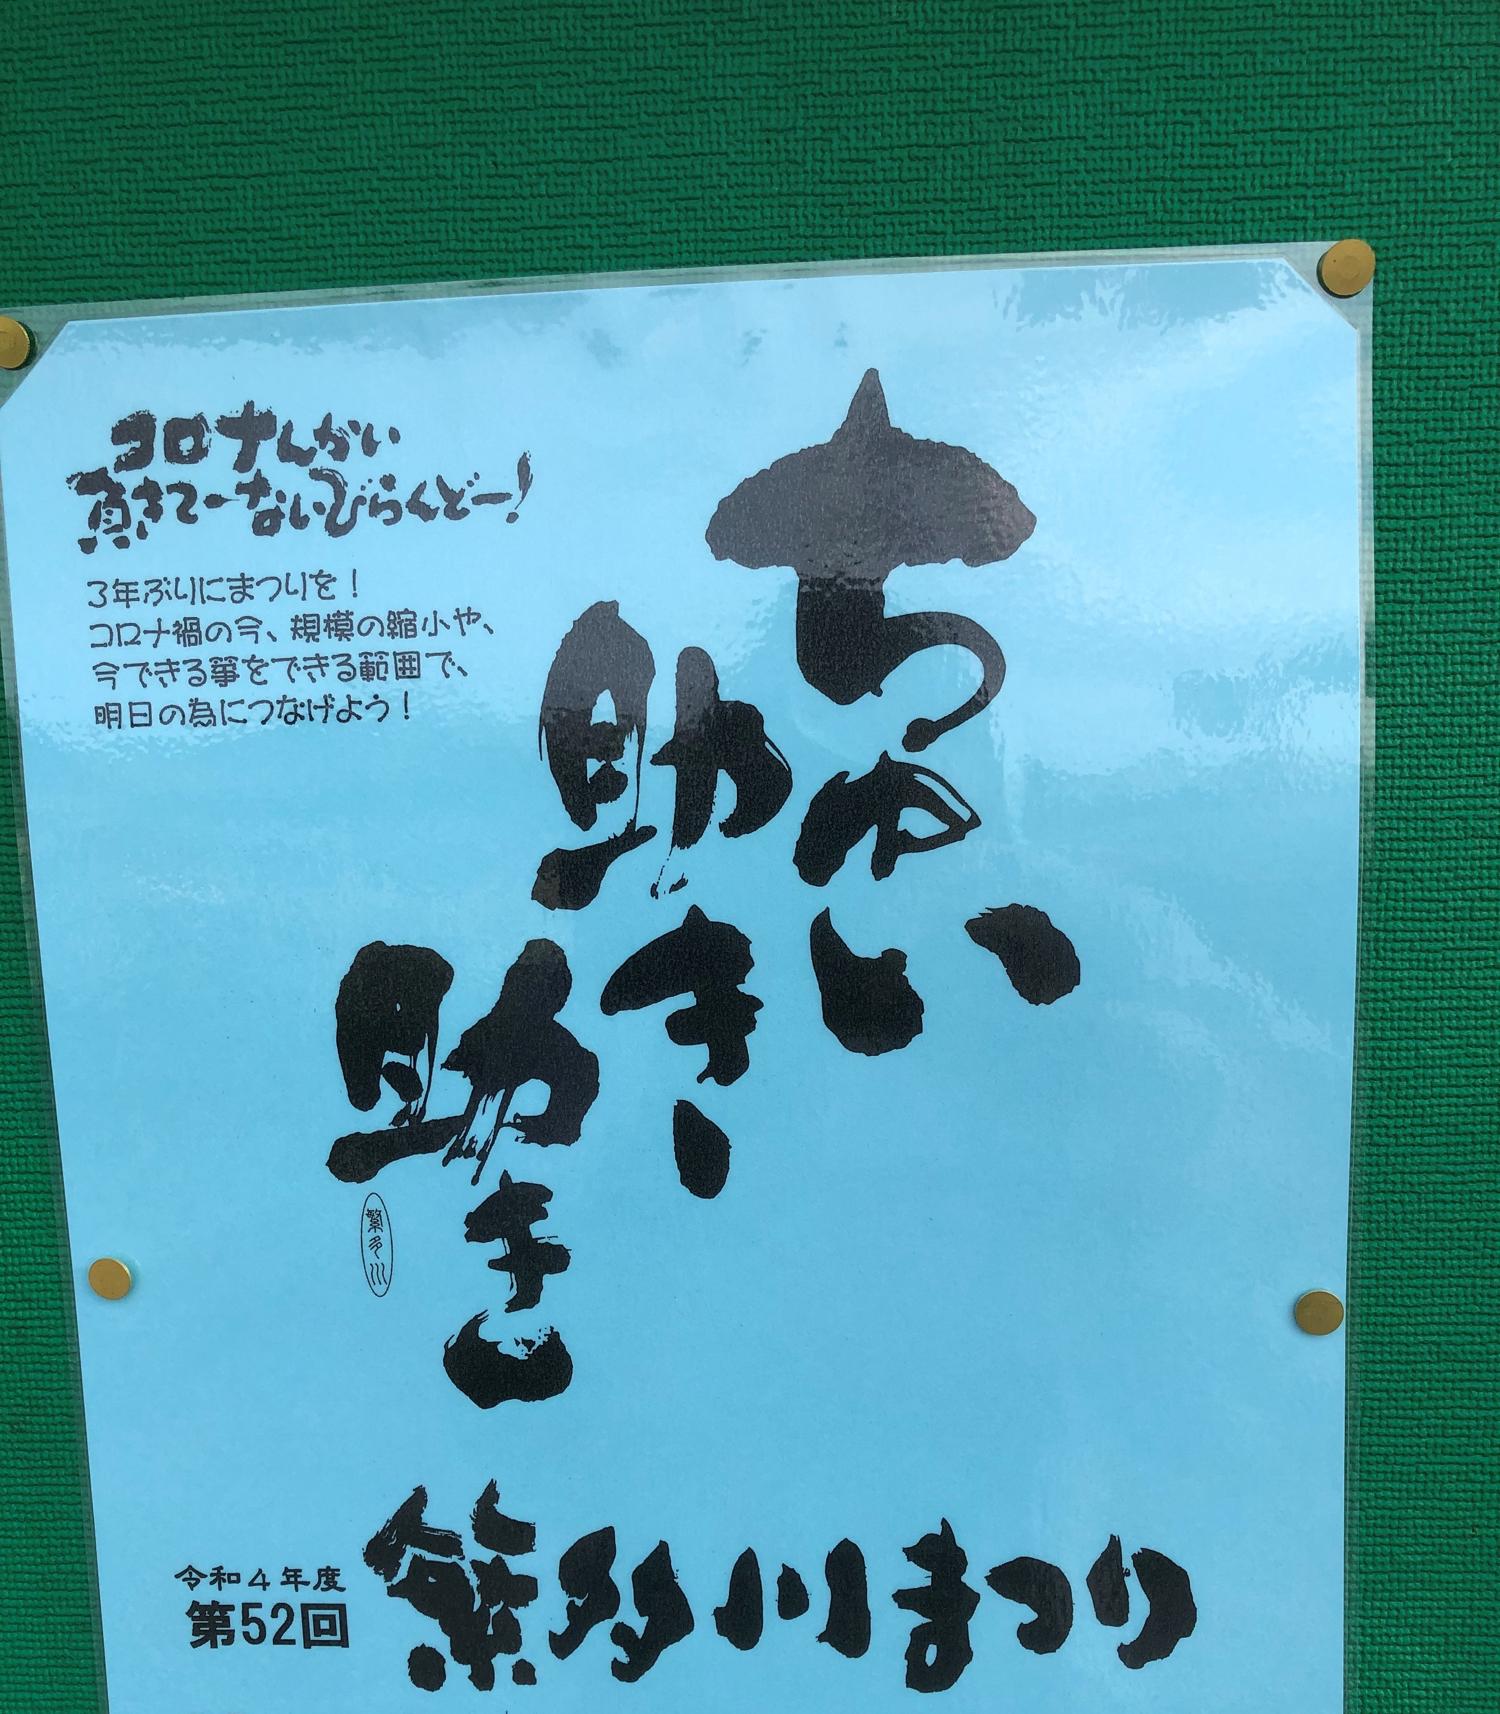 コロナんかい
負きてーないびらんどー!
3年ぶりにまつりを!
コロナ禍の今、規模の縮小や、
今できる事をできる範囲で、
明日の為につなげよう!
ちゅい
助きい
助きこ
繁多川
令和4年度
第52回
繁多川まつり